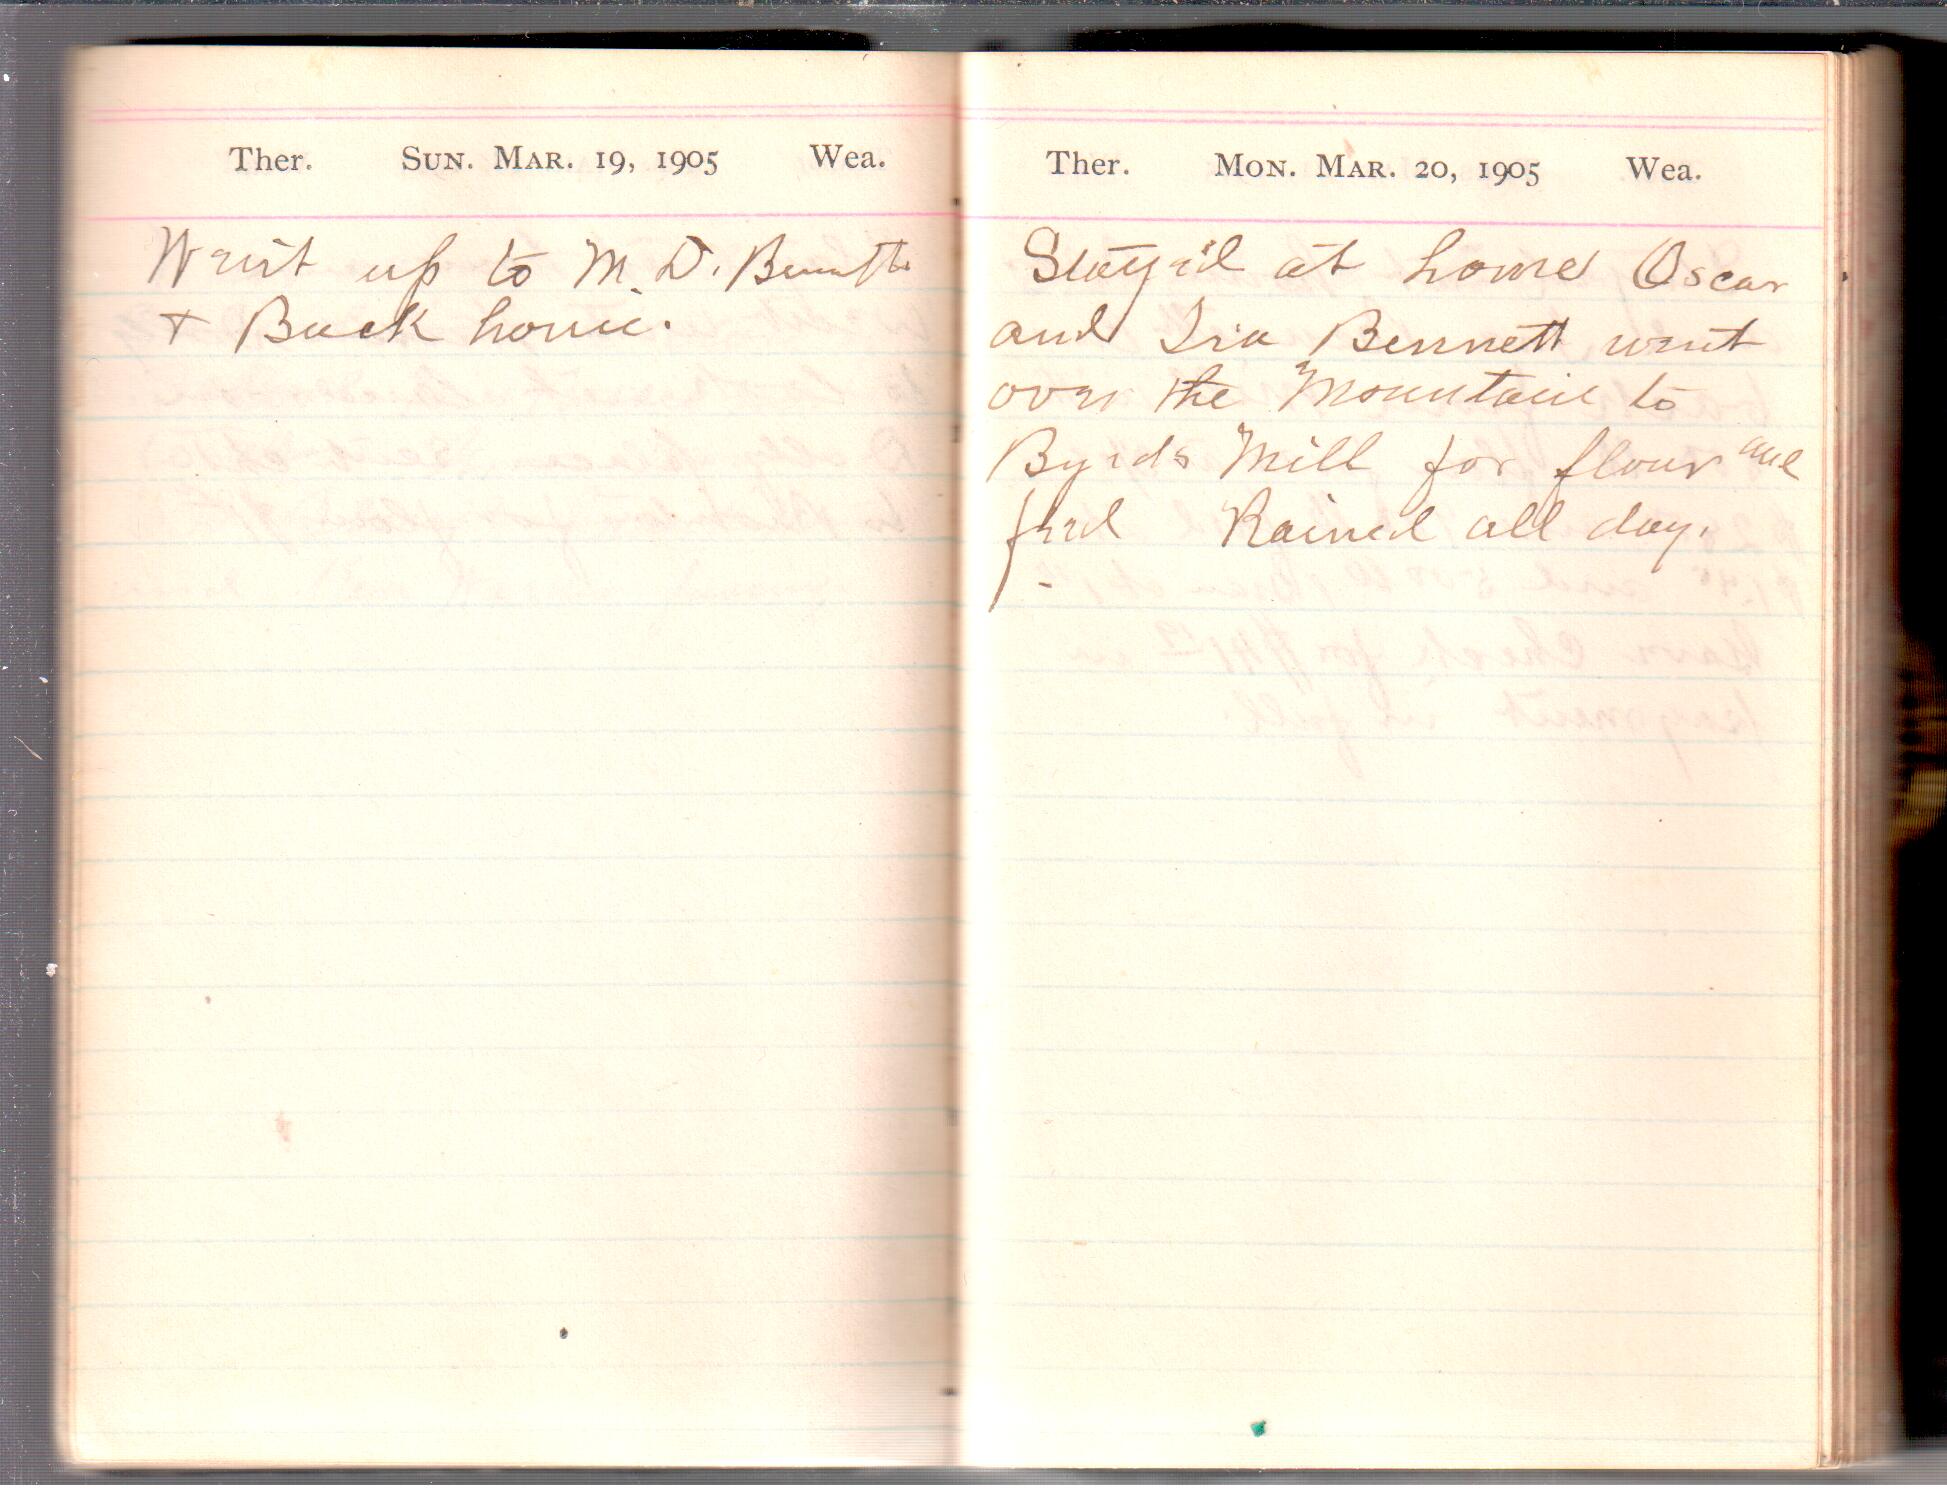 Ther. Sun. Mar. 19, 1905 Wea.
Went up to M. D. Bennetts
+ Back home.
Ther. Mon. Mar. 20, 1905 Wea.
Stayed at home Oscar
and Ira Bennett went
over the Mountain to
Byrds Mill for flour and
feed Rained all day.